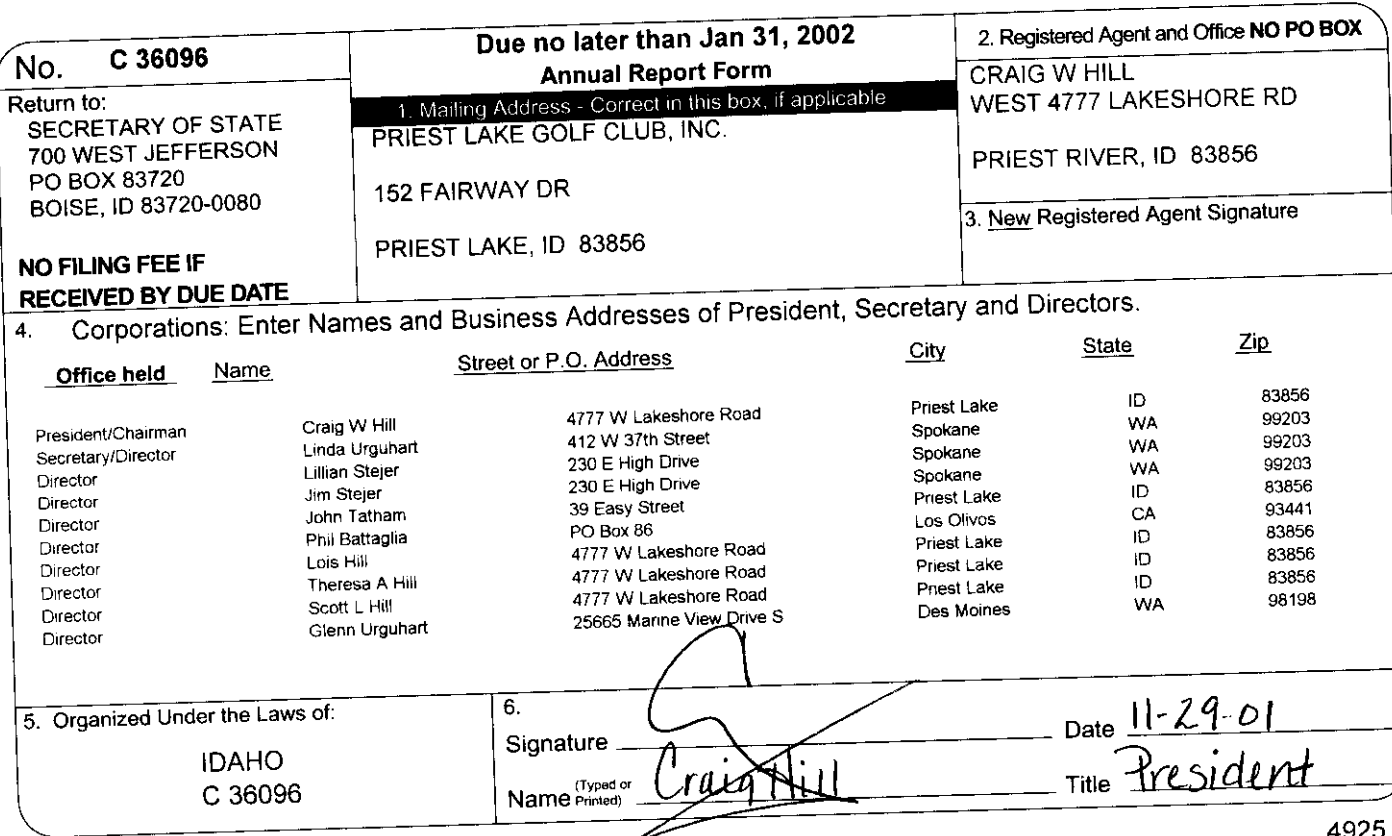 No. C 36096
Return to:
SECRETARY OF STATE
700 WEST JEFFERSON
PO BOX 83720
BOISE, ID 83720-0080
NO FILING FEE IF
RECEIVED BY DUE DATE
Due no later than Jan 31, 2002
Annual Report Form
1. Mailing Address - Correct in this box, if applicable
PRIEST LAKE GOLF CLUB, INC.
152 FAIRWAY DR
PRIEST LAKE, ID 83856
2. Registered Agent and Office NO PO BOX
CRAIG W HILL
WEST 4777 LAKESHORE RD
PRIEST RIVER, ID 83856
3. New Registered Agent Signature
4. Corporations: Enter Names and Business Addresses of President, Secretary and Directors.
Office held Name Street or P.O. Address City State Zip
President/Chairman Craig W Hill 4777 W Lakeshore Road Priest Lake ID 83856
Secretary/Director Linda Urguhart 412 W 37th Street Spokane WA 99203
Director Lillian Stejer 230 E High Drive Spokane WA 99203
Director Jim Stejer 230 E High Drive Spokane WA 99203
Director John Tatham 39 Easy Street Priest Lake ID 83856
Director Phil Battaglia PO Box 86 Los Olivos CA 93441
Director Lois Hill 4777 W Lakeshore Road Priest Lake ID 83856
Director Theresa A Hill 4777 W Lakeshore Road Priest Lake ID 83856
Director Scott L Hill 4777 W Lakeshore Road Priest Lake ID 83856
Director Glenn Urguhart 25665 Marine View Drive S Des Moines WA 98198
5. Organized Under the Laws of:
IDAHO
C 36096
6.
Signature Date 11-29-01
Name (Typed or Printed) Craig Hill Title President
4925